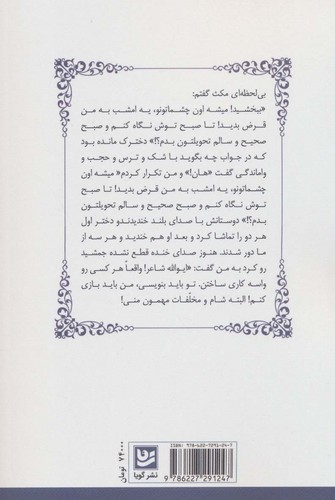 بی‌لحظه‌ای مکث گفتم:
«ببخشید! میشه اون چشماتونو، یه امشب به من
قرض بدید! تا صبح توش نگاه کنم و صبح
صحیح و سالم تحویلتون بدم؟!» دخترک مانده بود
که در جواب چه بگوید با شک و ترس و حجب و
واماندگی گفت «هان!» و من تکرار کردم «میشه اون
چشماتونو، یه امشب به من قرض بدید! تا صبح
توش نگاه کنم و صبح صحیح و سالم تحویلتون
بدم؟!» دوستانش با صدای بلند خندیدندو دختر اول
هر دو را تماشا کرد و بعد او هم خندید و هر سه از
ما دور شدند، هنوز صدای خنده قطع نشده جمشید
رو کرد به من گفت: «ایوالله شاعر! واقعاً هر کسی رو
واسه کاری ساختن. تو باید بنویسی، من باید بازی
کنم! البته شام و مخلّفات مهمون منی!
۷۴۰۰۰ تومان
نشر گویا
ISBN: 978-622-7291-24-7
9 786227 291247